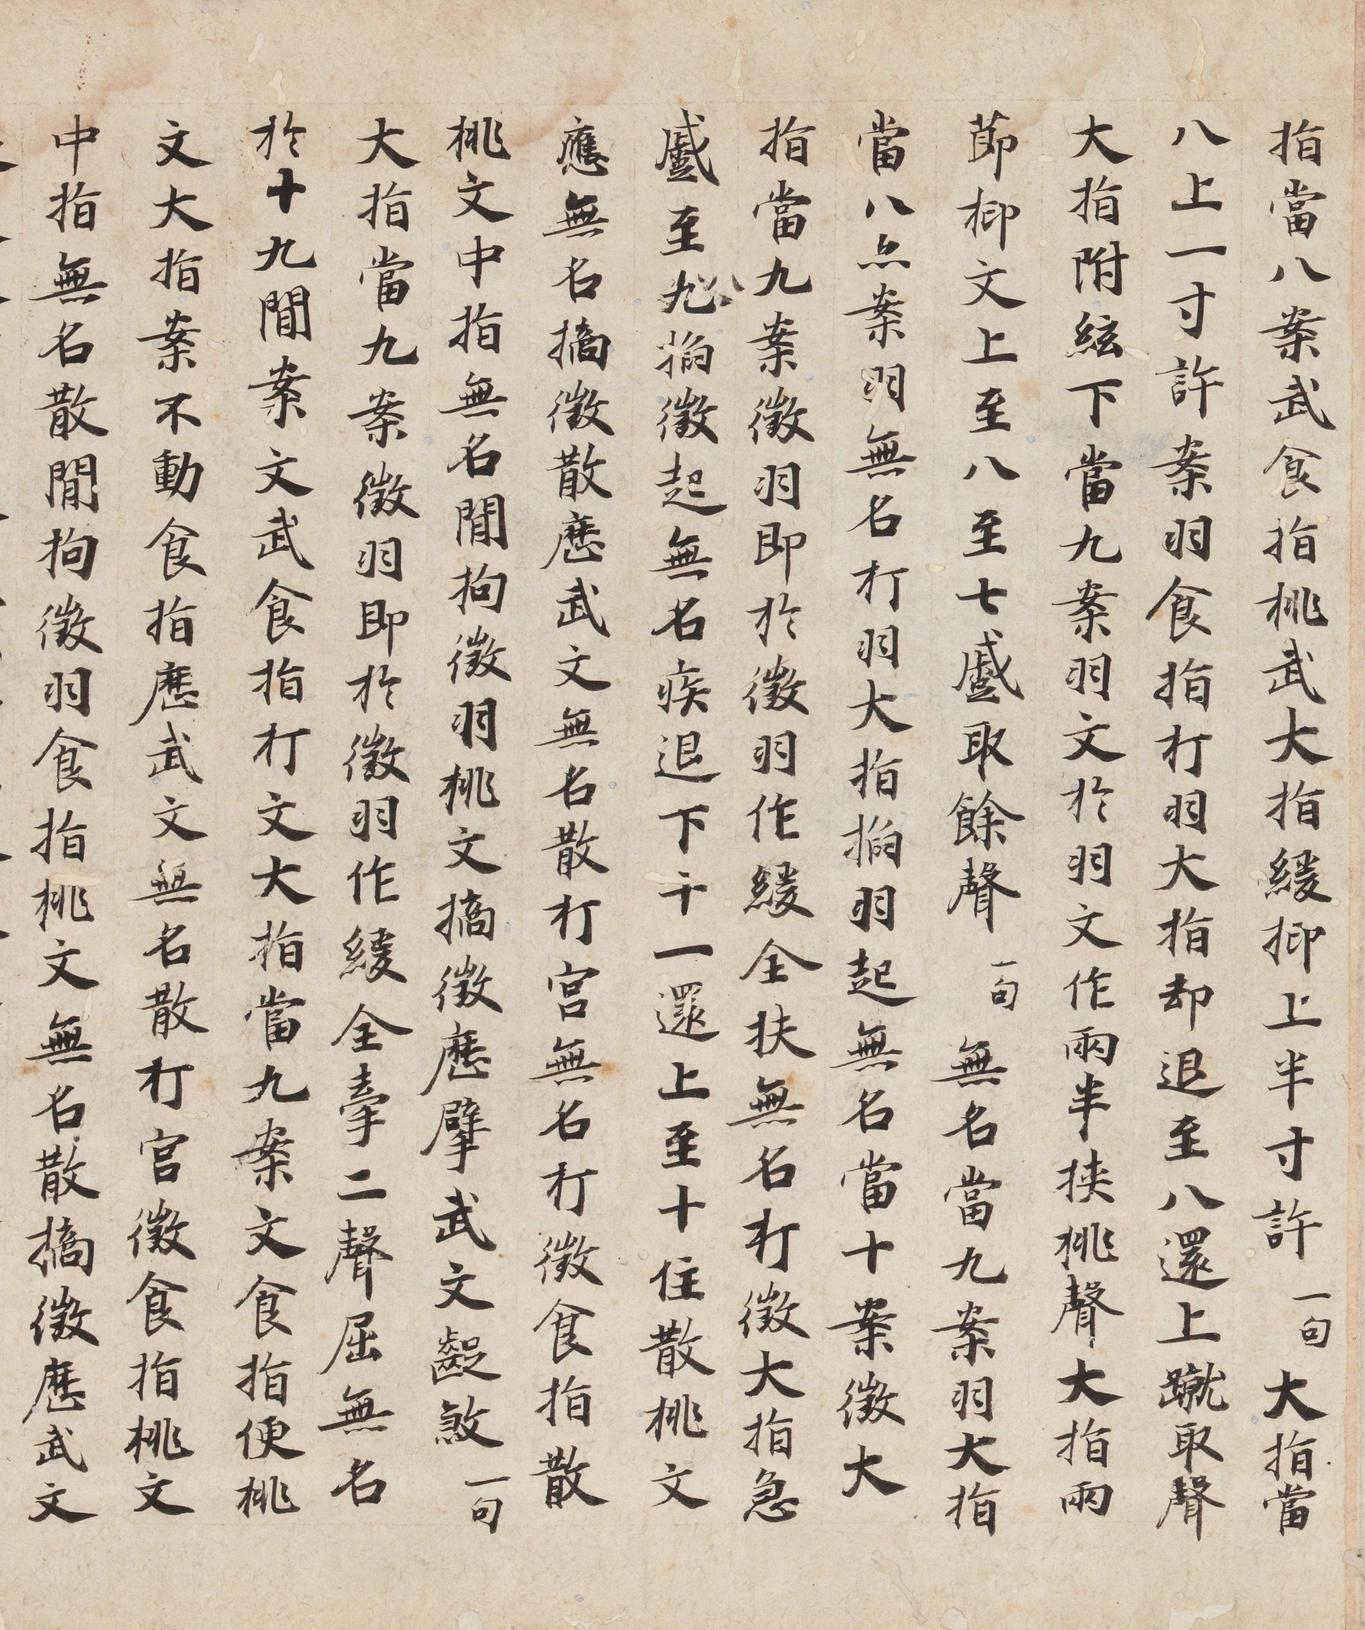 指當八案武食指挑武大指緩抑上半寸許一句大指當
八上一寸許案羽食指打羽大指却退至八還上蹴取聲
大指附絃下當九案羽文於羽文作兩半挾挑聲大指兩
節抑文上至八至七蹙取餘聲一句無名當九案羽大指
當八上案羽無名打羽大指搊羽起無名當十案徵大
指當九案徵羽即於徵羽作緩全扶無名打徵大指急
蹙至九八搊徵起無名疾退下十一還上至十住散挑文
應無名擿徵散應武文無名散打宮無名打徵食指散
挑文中指無名間拘徵羽挑文擿徵應擘武文齪煞一句
大指當九案徵羽即於徵羽作緩全牽二聲屈無名
於十九間案文武食指打文大指當九案文食指便挑
文大指案不動食指應武文無名散打宮徵食指挑文
中指無名散間拘徵羽食指挑文無名散擿徵應武文